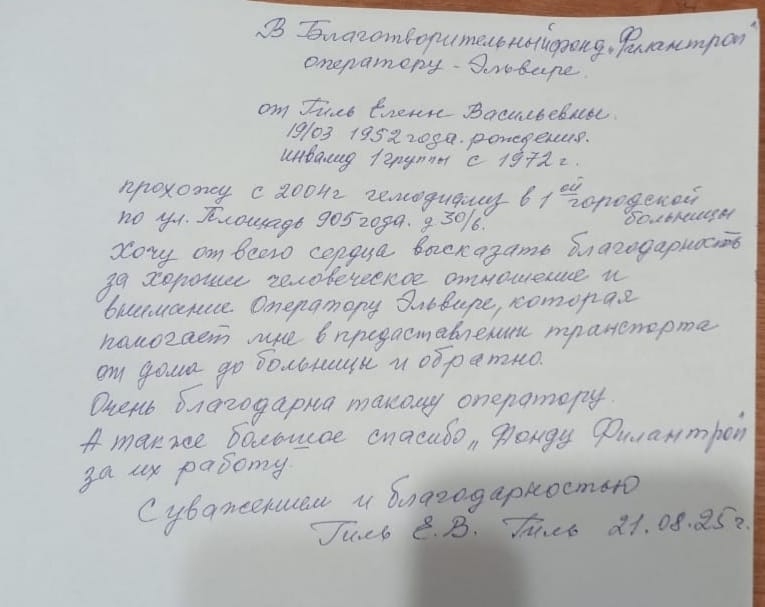 В Благотворительный фонд „Филантроп"
оператору - Эльвире.
от Гиль Елены Васильевны.
19/03 1952 года. рождения.
инвалид 1 группы с 1972 г.
прохожу с 2004 г гемодиализ в 1 ой городской
по ул. Площадь 905 года. д 30/6. больницы
Хочу от всего сердца высказать благодарность
за хорошее человеческое отношение и
внимание Оператору Эльвире, которая
помогает мне в предаставлении транспорта
от дома до больницы и обратно.
Очень благодарна такому оператору.
А также большое спасибо „Фонду Филантроп
за их работу.
С уважением и благодарностью
Гиль Е.В. Гиль 21.08.25 г.